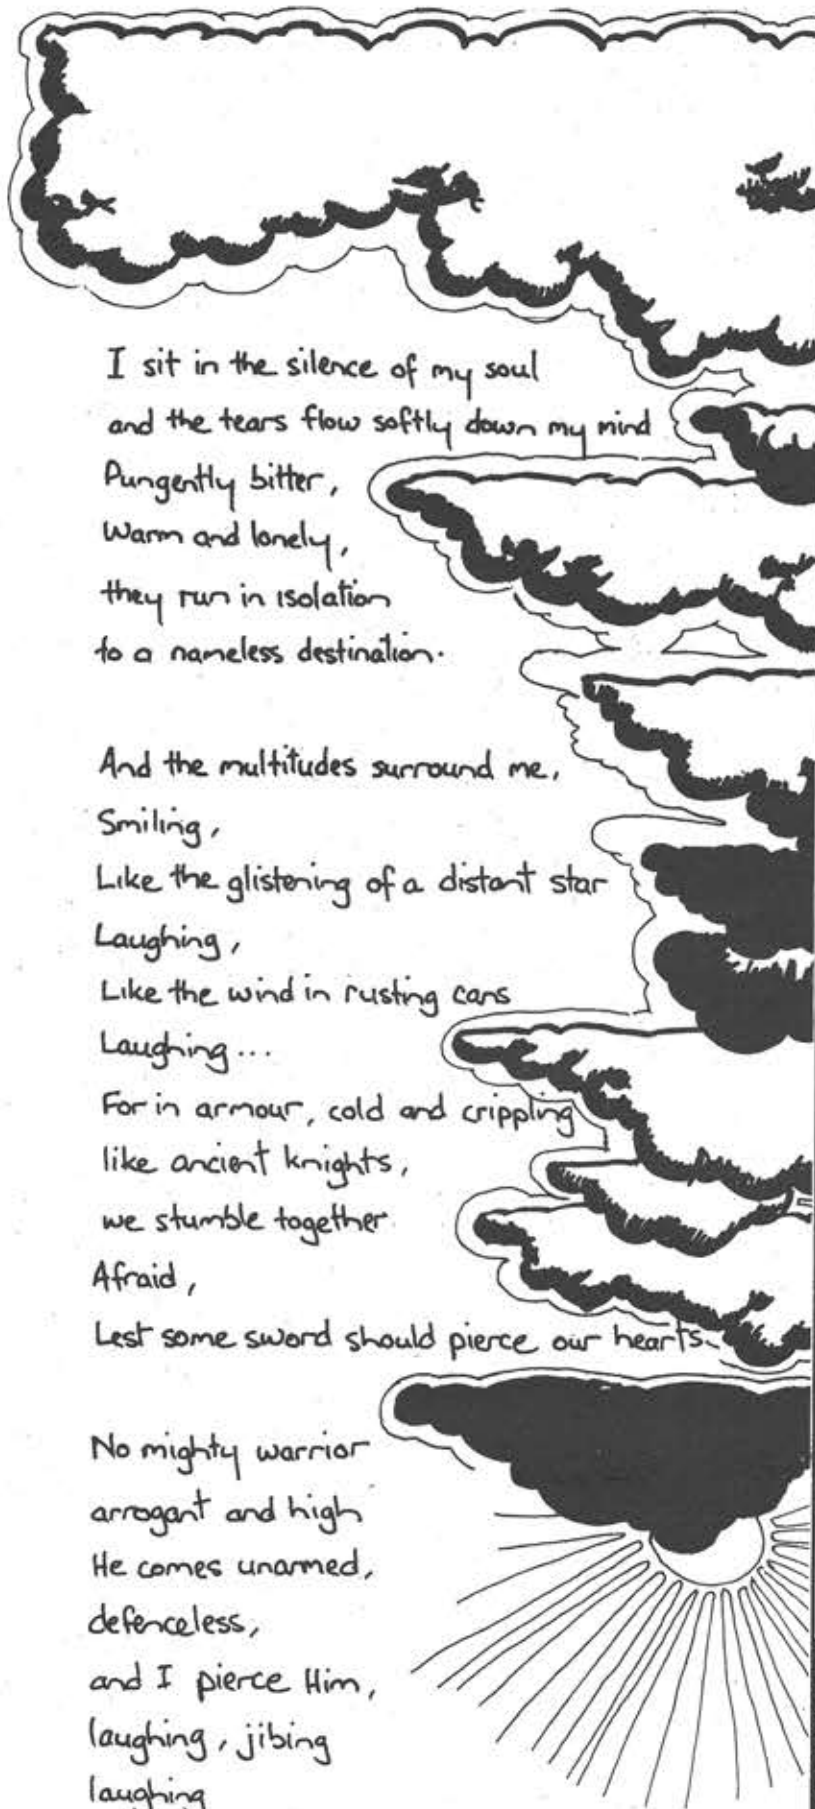 I sit in the silence of my soul
and the tears flow softly down my mind
Pungently bitter,
Warm and lonely,
they run in isolation
to a nameless destination.
And the multitudes surround me,
Smiling,
Like the glistening of a distant star
Laughing,
Like the wind in rusting cans
Laughing...
For in armour, cold and crippling
like ancient knights,
we stumble together
Afraid,
Lest some sword should pierce our hearts.
No mighty warrior
arrogant and high
He comes unarmed,
defenceless,
and I pierce Him,
laughing, jibing
laughing